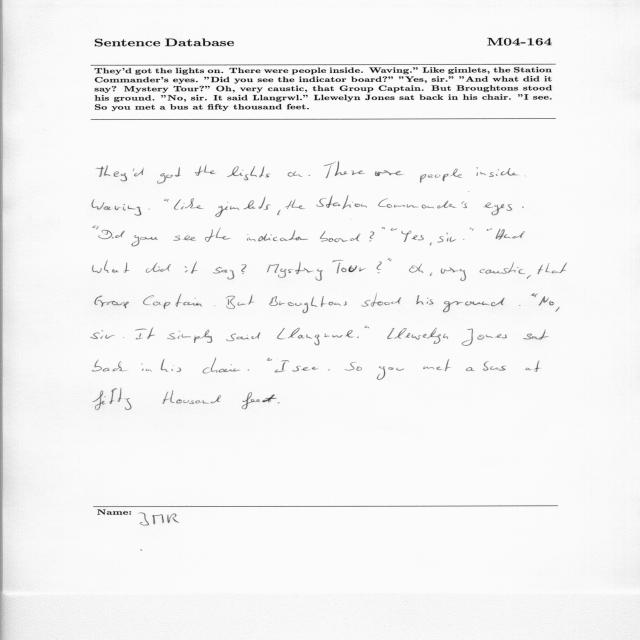 Sentence Database M04-164
They'd got the lights on. There were people inside. Waving." Like gimlets, the Station
Commander's eyes. "Did you see the indicator board?" "Yes, sir." "And what did it
say? Mystery Tour?" Oh, very caustic, that Group Captain. But Broughtons stood
his ground. "No, sir. It said Llangrwl." Llewelyn Jones sat back in his chair. "I see.
So you met a bus at fifty thousand feet.
They'd got the lights on. There were people inside.
Waving. "Like gimlets, the Station Commander's eyes.
"Did you see the indicator board?" "Yes, sir." "And
what did it say? Mystry Tour?" Oh, very caustic, that
Group Captain. But Broughtons stood his ground. "No,
sir. It simply said Llangrwl." Llewelyn Jones sat
back in his chair. "I see. So you met a bus at
fifty thousand feet.
Name: JMR